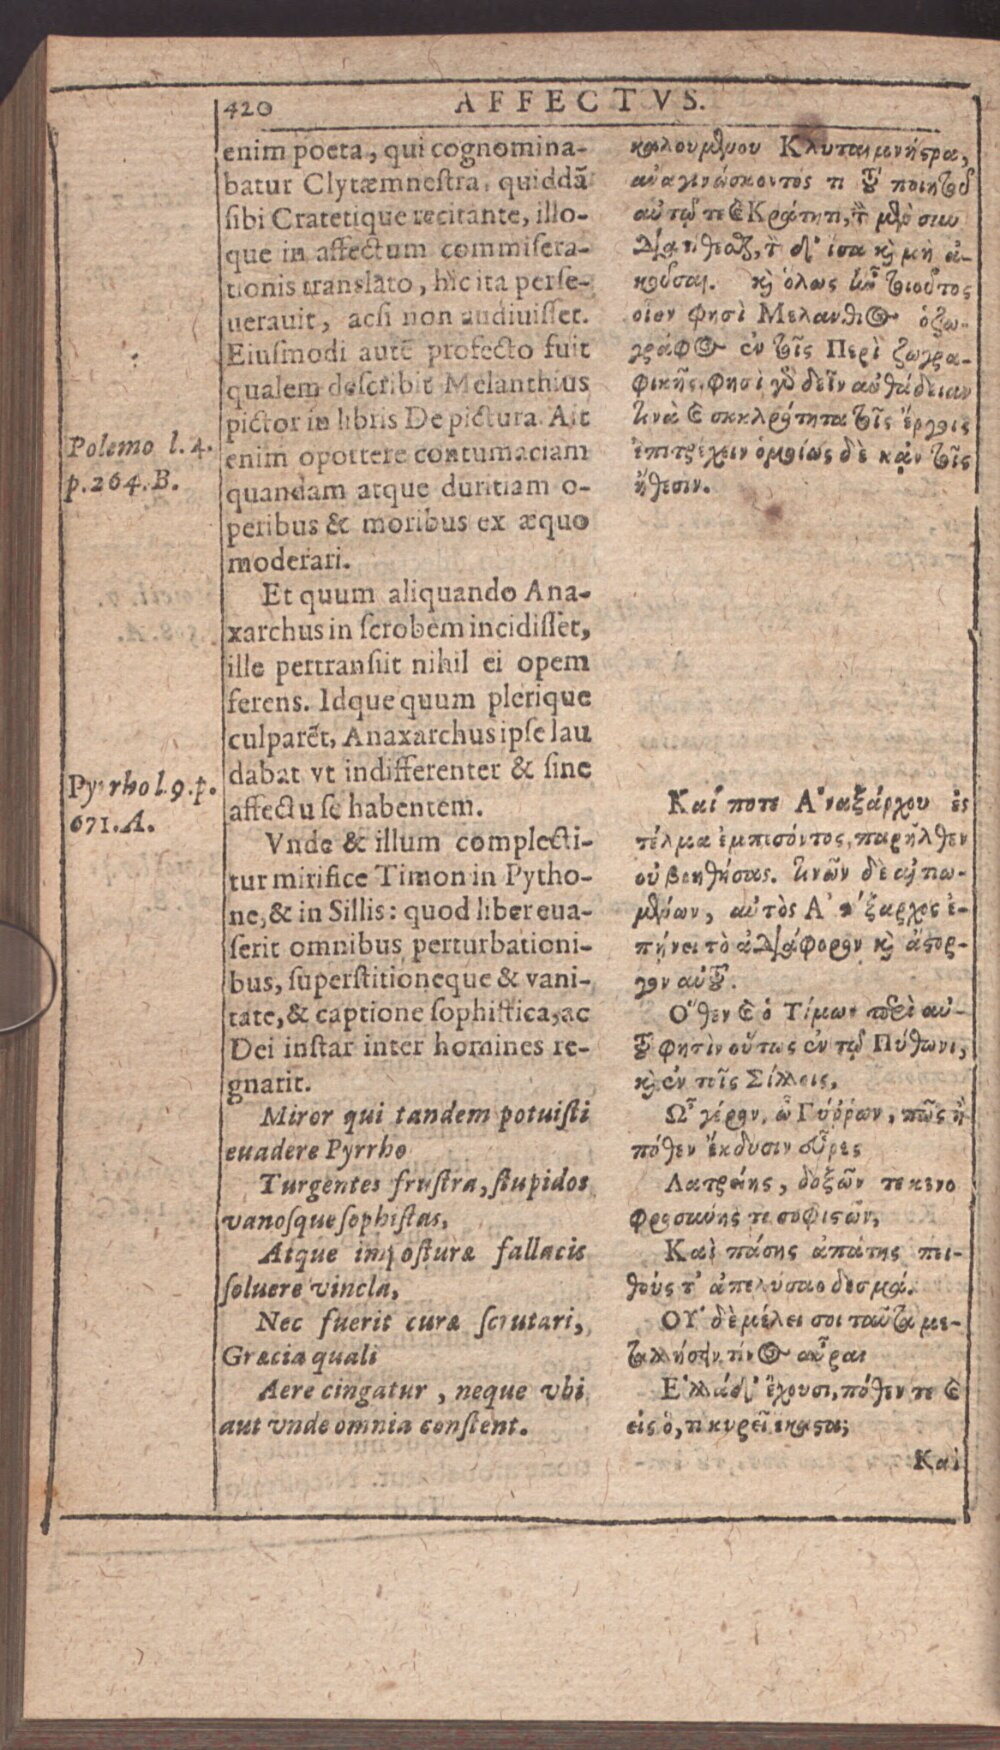 420
AFFECTVS.
enim poeta, qui cognomina-
batur Clytæmnestra, quiddã
sibi Cratetique recitante, illo-
que in affectum commisera-
tionis translato, hic ita perse-
uerauit, acsi non audiuisset.
Eiusmodi autẽ profecto fuit
qualem describit Melanthius
pictor in libris De pictura. Ait
enim oportere contumaciam
quandam atque duritiam o-
peribus & moribus ex æquo
moderari.
Et quum aliquando Ana-
xarchus in scrobem incidisset,
ille pertransiit nihil ei opem
ferens. Idque quum plerique
culparẽt, Anaxarchus ipse lau
dabat vt indifferenter & sine
affectu se habentem.
Vnde & illum complecti-
tur mirifice Timon in Pytho-
ne, & in Sillis: quod liber eua-
serit omnibus perturbationi-
bus, superstitioneque & vani-
tate, & captione sophistica, ac
Dei instar inter homines re-
gnarit.
Miror qui tandem potuisti
euadere Pyrrho
Turgentes frustra, stupidos
vanosque sophistas,
Atque imposturæ fallacis
soluere vincla,
Nec fuerit curæ scrutari,
Græcia quali
Aere cingatur, neque vbi
aut vnde omnia constent.
Polemo l. 4.
p. 264. B.
Pyrrho l. 9. p.
671. A.
καλουμένου Κλυταιμνήστρα,
ἀναγινώσκοντός τι τοῦ ποιητοῦ
αὐτῷ τε καὶ Κράτητι, τὸν μὲν συν
διατιθεαζ, τὸν δ' ἴσα καὶ μὴ ἀ-
κοῦσαι. καὶ ὅλως ἦν τοιοῦτος
οἷον φησὶ Μελάνθιος ὁ ζω-
γράφος ἐν τοῖς Περὶ ζωγρα-
φικῆς. φησὶ γὰρ δεῖν αὐθάδειαν
τινὰ καὶ σκληρότητα τοῖς ἔργοις
ἐπιτρέχειν ὁμοίως δὲ κἀν τοῖς
ἤθεσιν.
Καί ποτε Ἀναξάρχου ἐς
τέλμα ἐμπισόντος, παρῆλθεν
οὐ βοηθήσας. τινῶν δὲ αἰτιω-
μένων, αὐτὸς Ἀνάξαρχος ἐ-
πῄνει τὸ ἀδιάφορον καὶ ἄστορ-
γον αὐτοῦ.
Ὅθεν καὶ ὁ Τίμων περὶ αὐ-
τοῦ φησὶν οὕτως ἐν τῷ Πύθωνι,
καὶ ἐν τοῖς Σίλλοις,
Ὦ γέρον, ὦ Πύῤῥων, πῶς ἢ
πόθεν ἔκδυσιν εὗρες
Λατρείης, δοξῶν τε κενο
φροσύνης τε σοφιστῶν,
Καὶ πάσης ἀπάτης πει-
θοῦς τ' ἀπελύσαο δεσμά.
Οὐδὲ μέλει σοι ταῦτα με-
ταλλήσειν τίνος αὖραι
Ἑλλάδ' ἔχουσι, πόθεν τε καὶ
εἰς ὅ, τι κυρεῖ ἕκαστα;
Καὶ